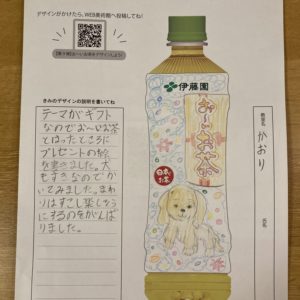 デザインがかけたら、WEB美術館へ投稿してね!
きみのデザインの説明を書いてね
テーマがギフト
なのでお〜いお茶
とはったところに
プレゼントの絵
を書きました。犬
もすきなのでか
いてみました。まわ
りはすこし楽しそう
にするのをがんば
りました。
伊藤園
お〜いお茶
日本の
お茶
かおり
氏名